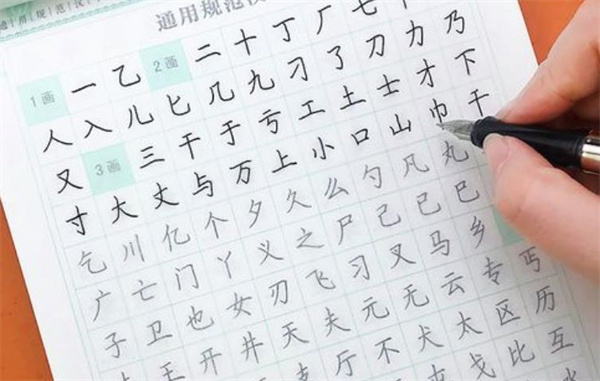 通用规范
1画 一 乙 2画 二 十 丁 厂 七
人 入 儿 匕 几 九 刁 了 刀 力 乃
又 3画 三 干 于 亏 工 土 士 才 下
寸 大 丈 与 万 上 小 口 山 巾 千
乞 川 亿 个 夕 久 么 勺 凡 丸
广 亡 门 丫 义 之 尸 己 已 巳
子 卫 也 女 刃 飞 习 叉 马 乡
王 开 井 天 夫 元 无 云 专 丐
支 厅 不 犬 太 区 历
戈 比 互